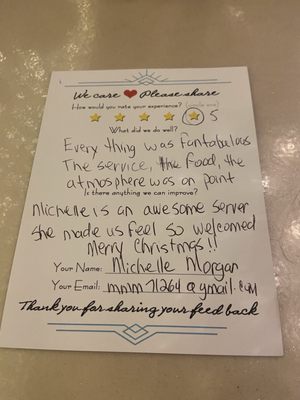 We care ❤ Please share
How would you rate your experience? (circle one)
5
What did we do well?
Every thing was fantabulous
The service, the food, the
atmosphere was on point
Is there anything we can improve?
Michelle is an awesome server
She made us feel so welcomed
Merry Christmas!!
Your Name: Michelle Morgan
Your Email: mmm71264@gmail.com
Thank you for sharing your feed back